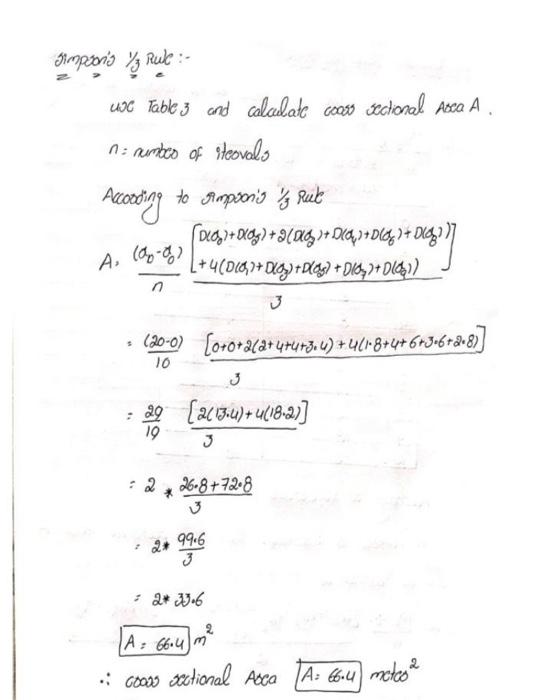 Simpson's 1/3 Rule :-
use Table 3 and calculate cross sectional Area A.
n = number of itervals
According to Simpson's 1/3 Rule
A = (d₀-d₀)/n [D(d₀)+D(d₅)+2(D(d₂)+D(d₄)+D(d₆)+D(d₈)) + 4(D(d₁)+D(d₃)+D(d₅)+D(d₇)+D(d₉))]/3
= (20-0)/10 [0+0+2(2+4+4+3.4)+4(1.8+4+6+3.6+2.8)]/3
= 20/10 [2(13.4)+4(18.2)]/3
= 2 * 26.8+72.8/3
= 2* 99.6/3
= 2* 33.6
A = 66.4 m²
∴ cross sectional Area A = 66.4 meter²